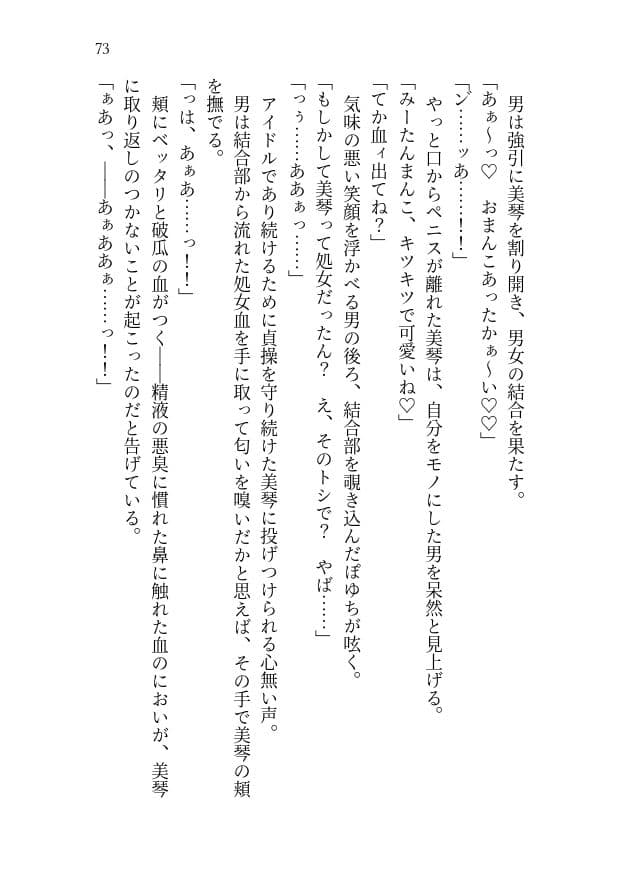 73
　男は強引に美琴を割り開き、男女の結合を果たす。
「あぁ～っ♡　おまんこあったかぁ～い♡♡」
「ン゛……ッあ……！！」
　やっと口からペニスが離れた美琴は、自分をモノにした男を呆然と見上げる。
「みーたんまんこ、キツキツで可愛いね♡」
「てか血ィ出てね？」
　気味の悪い笑顔を浮かべる男の後ろ、結合部を覗き込んだぽゆちが呟く。
「もしかして美琴って処女だったん？　え、そのトシで？　やば……」
「っぅ……ああぁっ……」
　アイドルであり続けるために貞操を守り続けた美琴に投げつけられる心無い声。
　男は結合部から流れた処女血を手に取って匂いを嗅いだかと思えば、その手で美琴の頬
を撫でる。
「っは、あぁあ……っ！！」
　頬にベッタリと破瓜の血がつく――精液の悪臭に慣れた鼻に触れた血のにおいが、美琴
に取り返しのつかないことが起こったのだと告げている。
「ぁあっ、――あぁああぁ……っ！！」